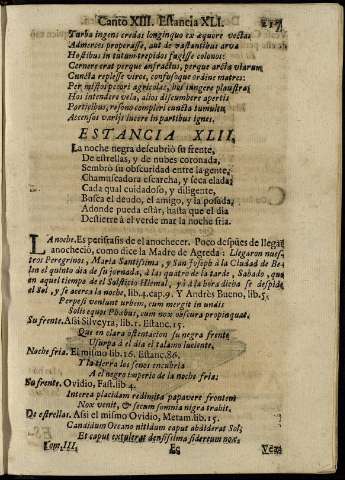 Canto XIII. Estancia XLI.
Turba ingens credas longinquo ex æquore vectas
Admersos properasse, aut de vastantibus arva
Hostibus in tutum trepidos fugisse colonos:
Cernere erat perque anfractus, perque arcta viarum
Cuncta replesse viros, confusoque ordine matres:
Per mistos pecori agricolas, hos iungere plaustra,
Hos intendere vela, alios discumbere apertis
Porticibus, resono compleri cuncta tumultu,
Accensos varijs lucere in partibus ignes.
ESTANCIA XLII.
La noche negra descubriò su frente,
De estrellas, y de nubes coronada,
Sembrò su obscuridad entre la gente,
Chamuscadora escarcha, y seca elada;
Cada qual cuidadoso, y diligente,
Busca el deudo, el amigo, y la posada,
Adonde pueda estàr, hasta que el dia
Destierre à el verde mar la noche fria.
La noche. Es perifrasis de el anochecer. Poco despúes de llegar
anocheciò, como dice la Madre de Agreda: Llegaron nuestros
Peregrinos, Maria Santisima, y San Joseph à la Ciudad de Belen
el quinto dia de su jornada, à las quatro de la tarde, Sabado, que
en aquel tiempo de el Solsticio Hiemal, yà à la hora dicha se despide
el Sol, y se acerca la noche, lib. 4. cap. 9. Y Andrès Bueno, lib. 5.
Perpesi venlunt urbem, cum mergit in undis
Solis equus Phæbus, cum nox obscura propinquat.
Su frente. Assi Silveyra, lib. 1. Estanc. 15.
Que en clara ostentacion su negra frente
Usurpa à el dia el talamo luciente.
Noche fria. El mismo lib. 16. Estanc. 86.
Y la tierra los senos encubria
A el negro imperio de la noche fria:
Su frente. Ovidio, Fast. lib. 4.
Interea placidam redimita papavere frontem
Nox venit, & secum somnia nigra trahit.
De estrellas. Assi el mismo Ovidio, Metam. lib. 15.
Candidum Oceano nitidum caput abdiderat Sol,
Et caput extulerat densissima sidereum nox.
Tom. III.
Ee